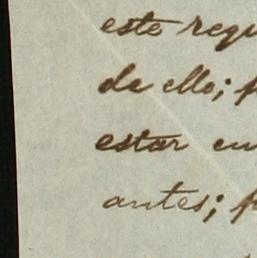 este requ
de ello; p
estar en
antes; p